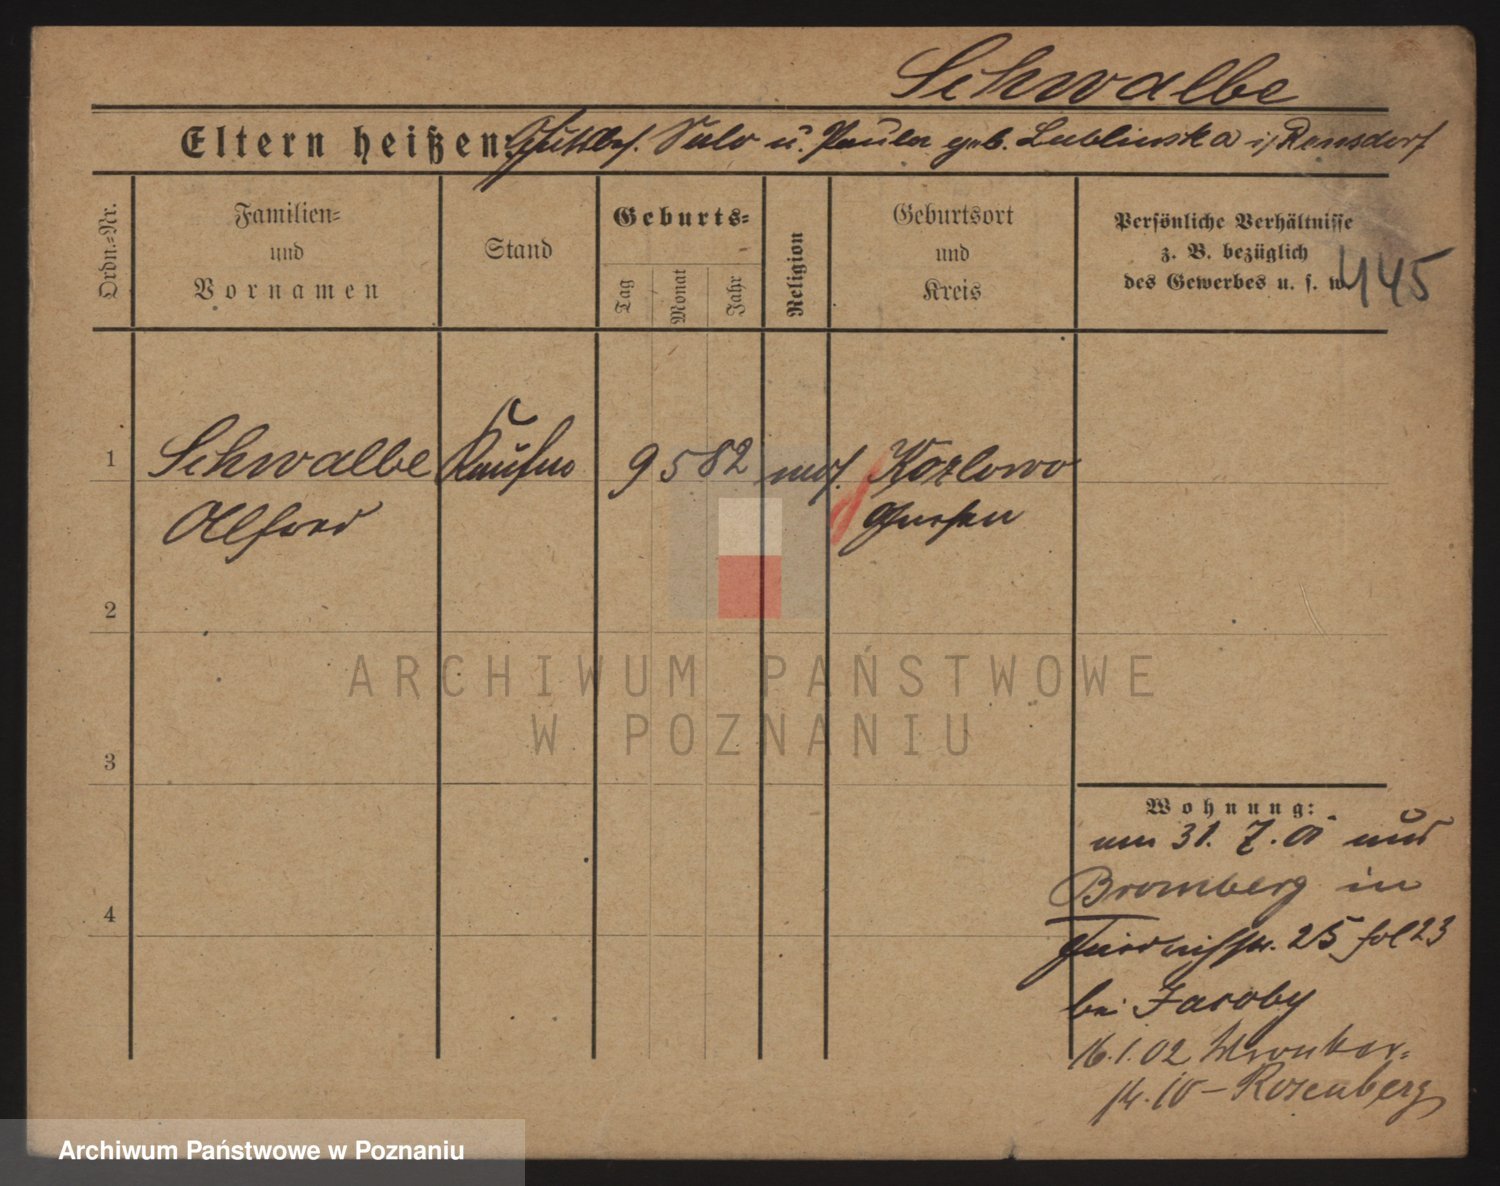 Schwalbe
Eltern heißen: Gutsbes. Salo u. Paula geb. Lublinska i/ Ramsdorf
Ordn.-Nr.
Familien-
und
Vornamen
Stand
Geburts-
Tag
Monat
Jahr
Religion
Geburtsort
und
Kreis
Persönliche Verhältnisse
z. B. bezüglich
des Gewerbes u. s. w.
445
1 Schwalbe Kaufm 9 5 82 mos. Kozlowo
Alfred Gnesen
2
3
4
Wohnung:
am 31. 7. 01 aus
Bromberg in
25 fol 23
bei Jacoby
16.1.02 Wronker-
str. 10 - Rosenberg
ARCHIWUM PAŃSTWOWE
W POZNANIU
Archiwum Państwowe w Poznaniu